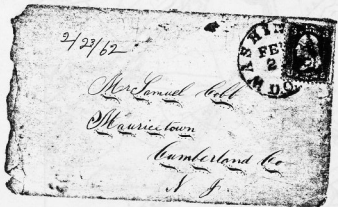 2/23/62
WASHIN
FEB
2
Mr Samuel Cobb
Mauricetown
Cumberland Co
N J